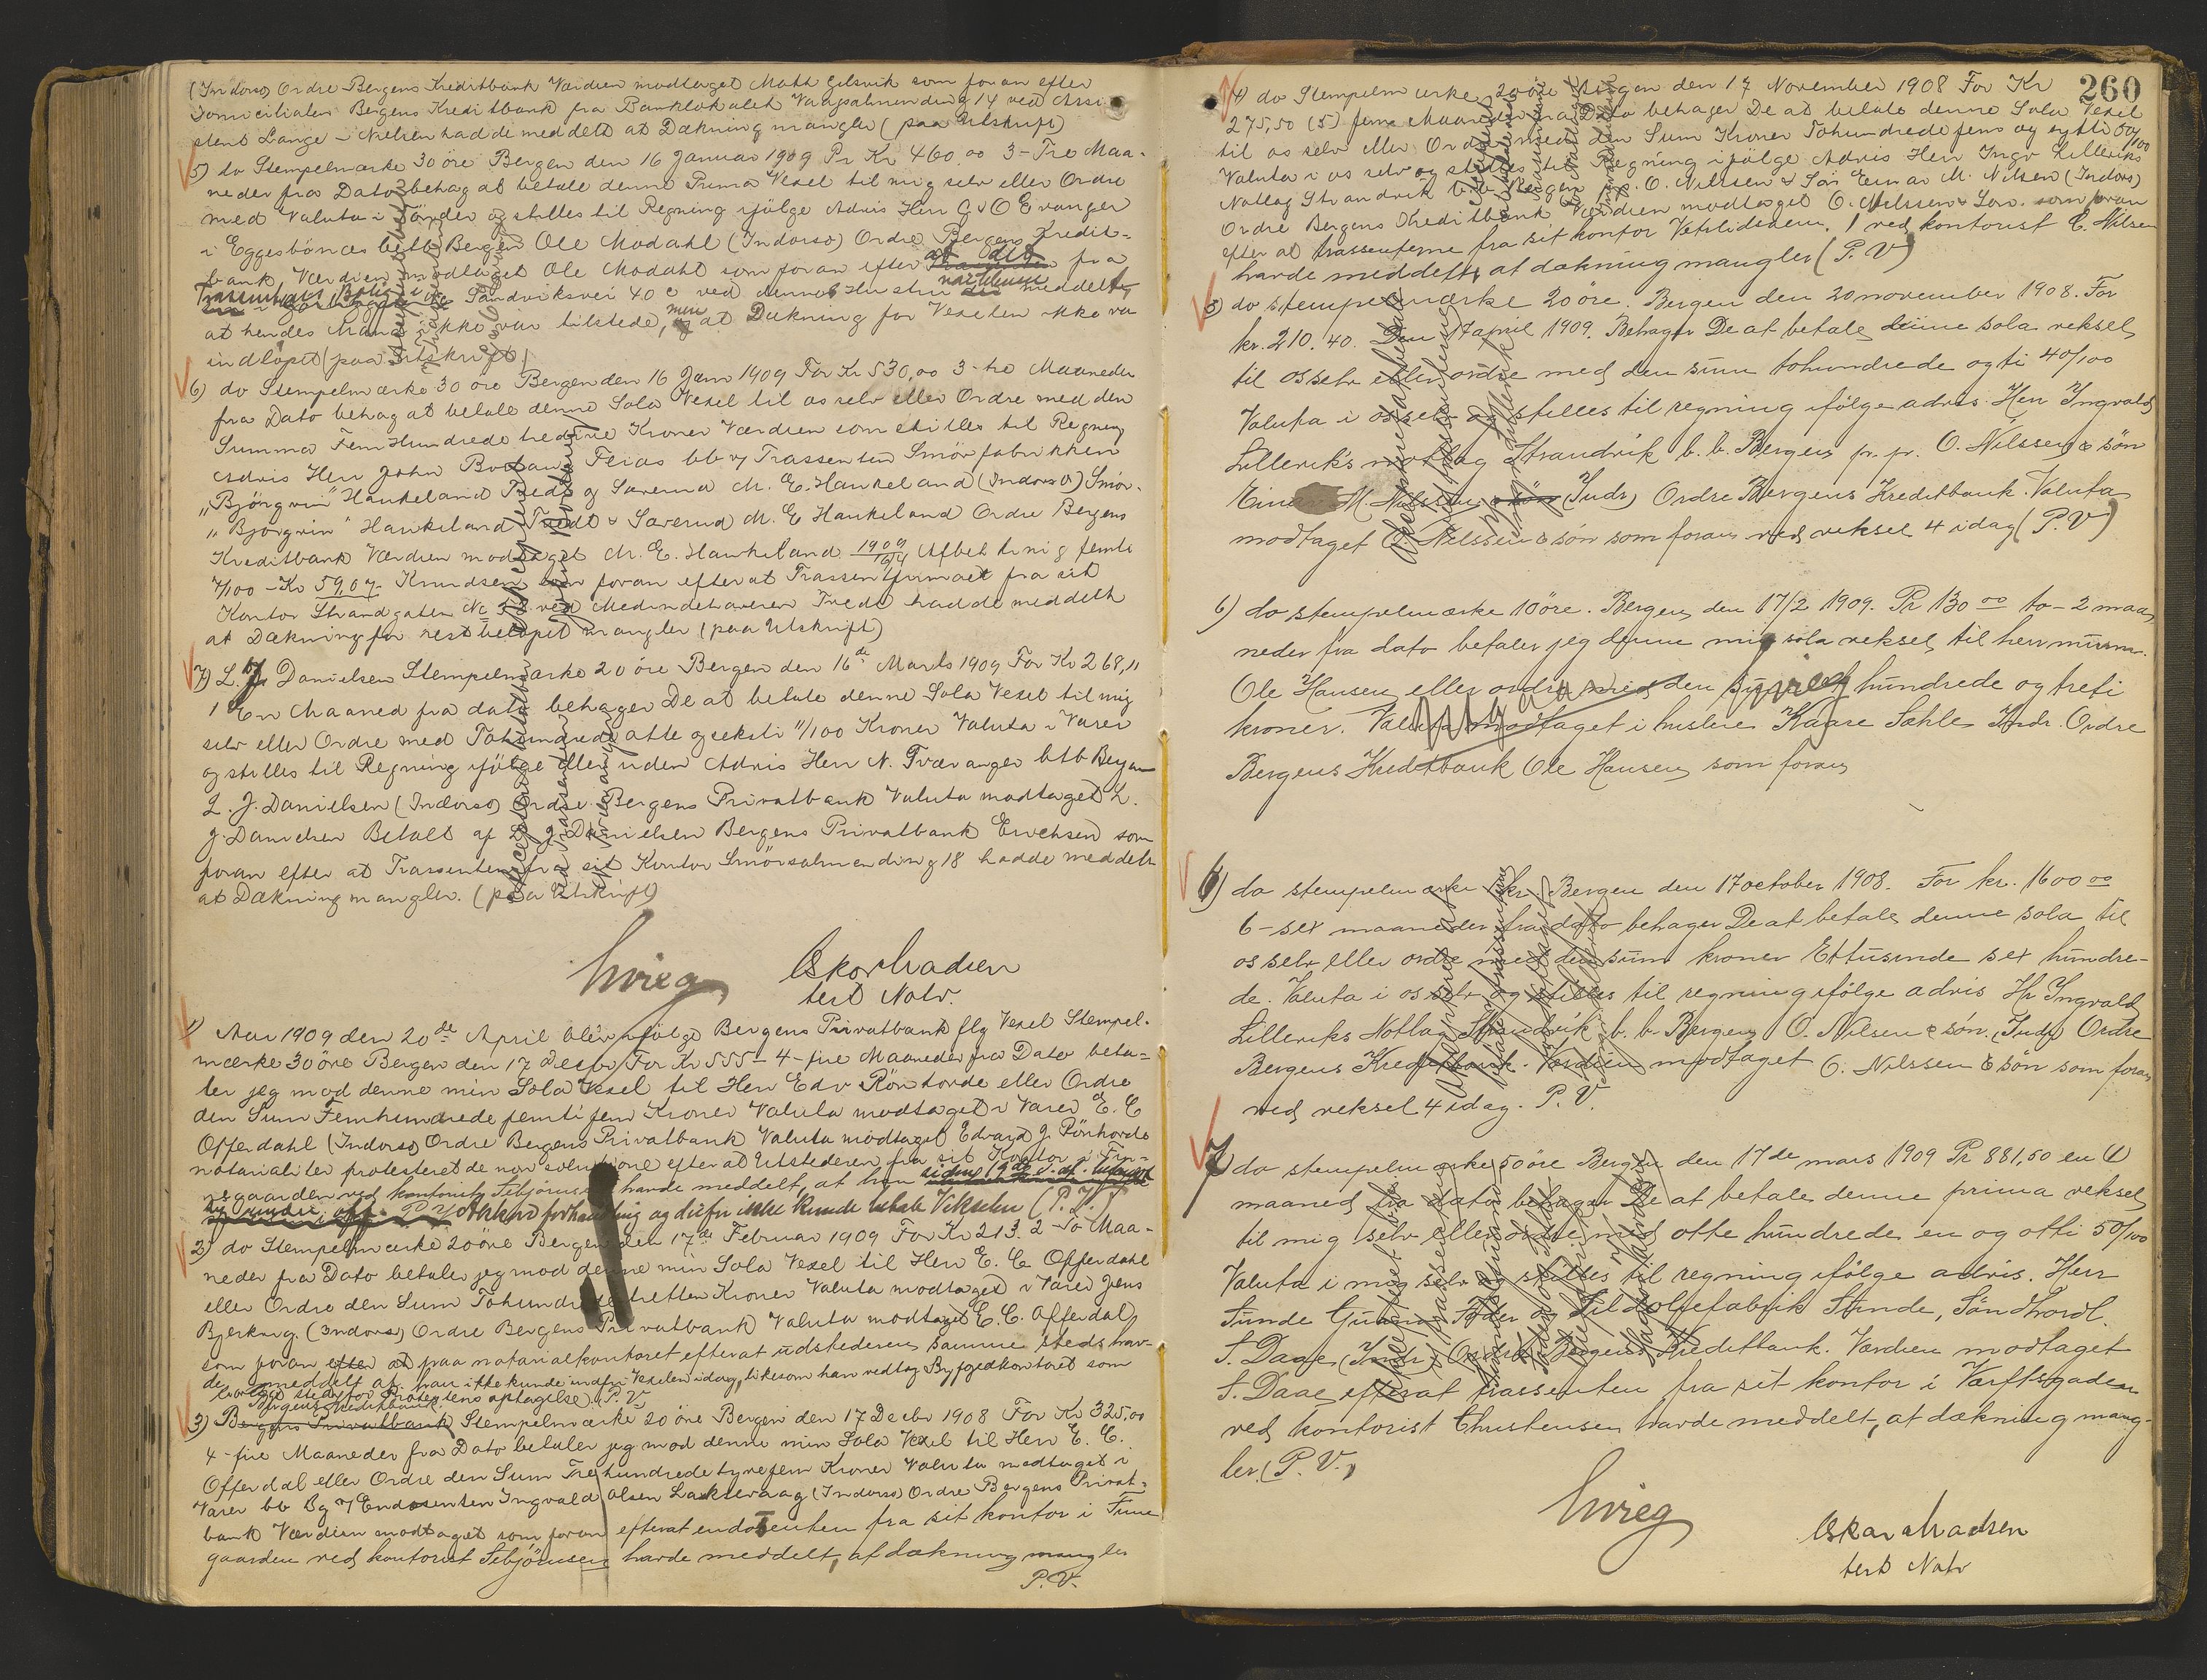 (Indorso) Ordre Bergens Kreditbank Værdien modtaget Math Gilsvik som foran efter
Domicilialen Bergens Kreditbank fra Banklokalet Vaagsalmending 14 ved Assi
stent Lange-Nielsen hadde meddelt at Dækning mangler (paa Utskrift)
5) do Stempelmærke 30 öre Bergen den 16 Januar 1909 Pr Kr 460,00 3-Tre Maa-
neder fra Dato behag at betale denne Prima Vexel til mig selv eller Ordre
med Valuta i Tönder og stilles til Regning ifölge Advis Herr G & O Evanger
i Eggesbönæs bttb Bergen Ole Modahl (Indorso) Ordre Bergens Kredit-
bank Værdien modtaget Ole Modahl som foran efter at det fra
Trassentens Bolig i Sandviksvei 40 c ved dennes Hustru meddelt,
at hendes Mand ikke var tilstede, men at Dækning for Vexelen ikke var
indlöpet (paa Utskrift)
6) do Stempelmærke 30 öre Bergen den 16 Janr 1909 For Kr 530,00 3-tre Maaneder
fra Dato behag at betale denne Sola Vexel til os selv eller Ordre med den
Summa Fem Hundrede tredive Kroner Værdien som stilles til Regning
Advis Herr John Fleias bb v/ Trassenten Smörfabrikken
"Björgvin" Haukeland Tredt og Saverud M. E. Haukeland (Indorso) Smör-
"Björgvin" Haukeland Tredt & Saverud M. E Haukeland Ordre Bergens
Kreditbank Værdien modtaget M. E. Haukeland 1909 16/4 Afbet ti ni og femti
7/100 - Kr 59,07 Knudsen som foran efter at Trassentfirmaet fra sit
Kontor Strandgaten No 58 ved Medindehaveren Tredt hadde meddelt
at Dækning for restbelöpet mangler (paa Utskrift)
7) L. J. Danielsen Stempelmærke 20 öre Bergen den 16de Marts 1909 For Kr 268,11
1 En Maaned fra dato behager De at betale denne Sola Vexel til mig
selv eller Ordre med Tohundrede otte og seksti 11/100 Kroner Valuta i Varer
og stilles til Regning ifölge eller uden Advis Herr N. Tværanger btb Bergen
L. J. Danielsen (Indorso) Ordre Bergens Privatbank Valuta modtaget L.
J. Danielsen Betalt af L. J. Danielsen Bergens Privatbank Erichsen som
foran efter at Trassenten fra sit Kontor Smörsalmending 18 hadde meddelt
at Dækning mangler. (paa Utskrift)
Oskar Madsen
test Notr.
1) Aar 1909 den 20de April blev ifölge Bergens Privatbank flg Vexel Stempel-
mærke 30 öre Bergen den 17 Decbr For Kr 555- 4-fire Maaneder fra Dato beta-
ler jeg mod denne min Sola Vexel til Herr Edv Rönhovde eller Ordre
den Sum Femhundrede femti fem Kroner Valuta modtaget i Varer E. C
Offerdahl (Indorso) Ordre Bergens Privatbank Valuta modtaget Edvard J. Rönhovde
notarialiter protesteret de non solutione efter at Utstederen fra sit Kontor i Fin-
negaarden ved kontorist havde meddelt, at han
Akkordforhandling og derfor ikke kunde betale Vekselen (P. V.)
2) do Stempelmærke 20 öre Bergen den 17de Februar 1909 For Kr 213. 2-To Maa-
neder fra Dato betaler jeg mod denne min Sola Vexel til Herr E. C. Offerdahl
eller Ordre den Sum Tohundrede tretten Kroner Valuta modtaget i Varer Jens
Bjerkvig. (Indorso) Ordre Bergens Privatbank Valuta modtaget E. C. Offerdal
som foran efter at paa notarialkontoret efterat udstederen samme steds hav-
de meddelt at han ikke kunde indfri Vexelen idag, likesom han vedtog Byfogedkontoret som
lovligt sted for Protestens optagelse. P. V.
Bergens Kreditbank
3) Bergens Privatbank Stempelmærke 20 öre Bergen den 17 Decbr 1908 For Kr 325,00
4-fire Maaneder fra Dato betaler jeg mod denne min Sola Vexel til Herr E. C.
Offerdal eller Ordre den Sum Trehundrede tyvefem Kroner Valuta modtaget i
Varer bb Bg v/ Endosenten Ingvald Olsen Laksevaag (Indorso) Ordre Bergens Privat-
bank Værdien modtaget som foran efterat endosenten fra sit kontor i Finne
gaarden ved kontorist havde meddelt, at dækning mangler
P. V.
260
4) do Stempelmærke 20 öre Bergen den 17 November 1908 For Kr
275,50 (5) fem Maaneder fra Dato behager De at betale denne Sola Vexel
til os selv eller Ordre med den Sum Kroner Tohundrede fem og sytti 50/100
Valuta i os selv og stilles til Regning ifölge Advis Herr Ingv Lilleriks
Notlag Strandvik b. b. Bergen O. Nilssen & Sön Einar M. Nilsen (Indors)
Ordre Bergens Kreditbank Værdien modtaget O. Nilssen & Sön. som foran
efter at trassenterne fra sit kontor Vetrlidsalm. 1 ved kontorist E. Nilsen
havde meddelt, at dækning mangler (P. V)
5) do stempelmærke 20 öre. Bergen den 20 november 1908. For
kr. 210.40. Den 17 april 1909. Behager De at betale denne sola veksel
til os selv eller ordre med den sum tohundrede og ti 40/100
Valuta i os selv og stilles til regning ifölge advis Herr Ingvald
Lilleriks notlag Strandvik b. b. Bergen pr. pr. O. Nilssen & sön
Einar M. Nilssen (Indr) Ordre Bergens Kreditbank. Valuta
modtaget O. Nilssen & sön som foran ved veksel 4 idag (P. V)
6) do stempelmærke 10 öre. Bergen den 17/2 1909. Pr 130 00 to-2 maa
neder fra dato betaler jeg denne min sola veksel til herr murm.
Ole Hansen eller ordre med den sum hundrede og treti
kroner. Valuta modtaget i husleie Kaare Sahle Indr. Ordre
Bergens Kreditbank Ole Hansen som foran
6) do stempelmærke 1 kr. Bergen den 17 october 1908. For kr. 1600 00
6-sex maaneder fra dato behager De at betale denne sola til
os selv eller ordre med den sum kroner Ettusinde sex hundre-
de. Valuta i os selv og stilles til regning ifölge advis Hr Ingvald
Lilleriks Notlag Strandvik b. b. Bergen O. Nilsen & sön. (Indr) Ordre
Bergens Kreditbank. Værdien modtaget O. Nilssen & sön som foran
ved veksel 4 idag. P. V.
7) do stempelmærke 50 öre Bergen den 17de mars 1909 Pr 881,50 en (1)
maaned fra dato behager De at betale denne prima veksel
til mig selv eller ordre med otte hundrede en og otti 50/100
Valuta i mig selv og stilles til regning ifölge advis. Herr
Sunde Guano Foder og Sildoljefabrik Sunde, Söndhordl.
S. Daae, (Indr) Ordre Bergens Kreditbank. Værdien modtaget
S. Daae efterat trassenten fra sit kontor i Værftsgaden
ved kontorist Christensen havde meddelt, at dækning mang-
ler. (P. V.)
Oskar Madsen
test Notr